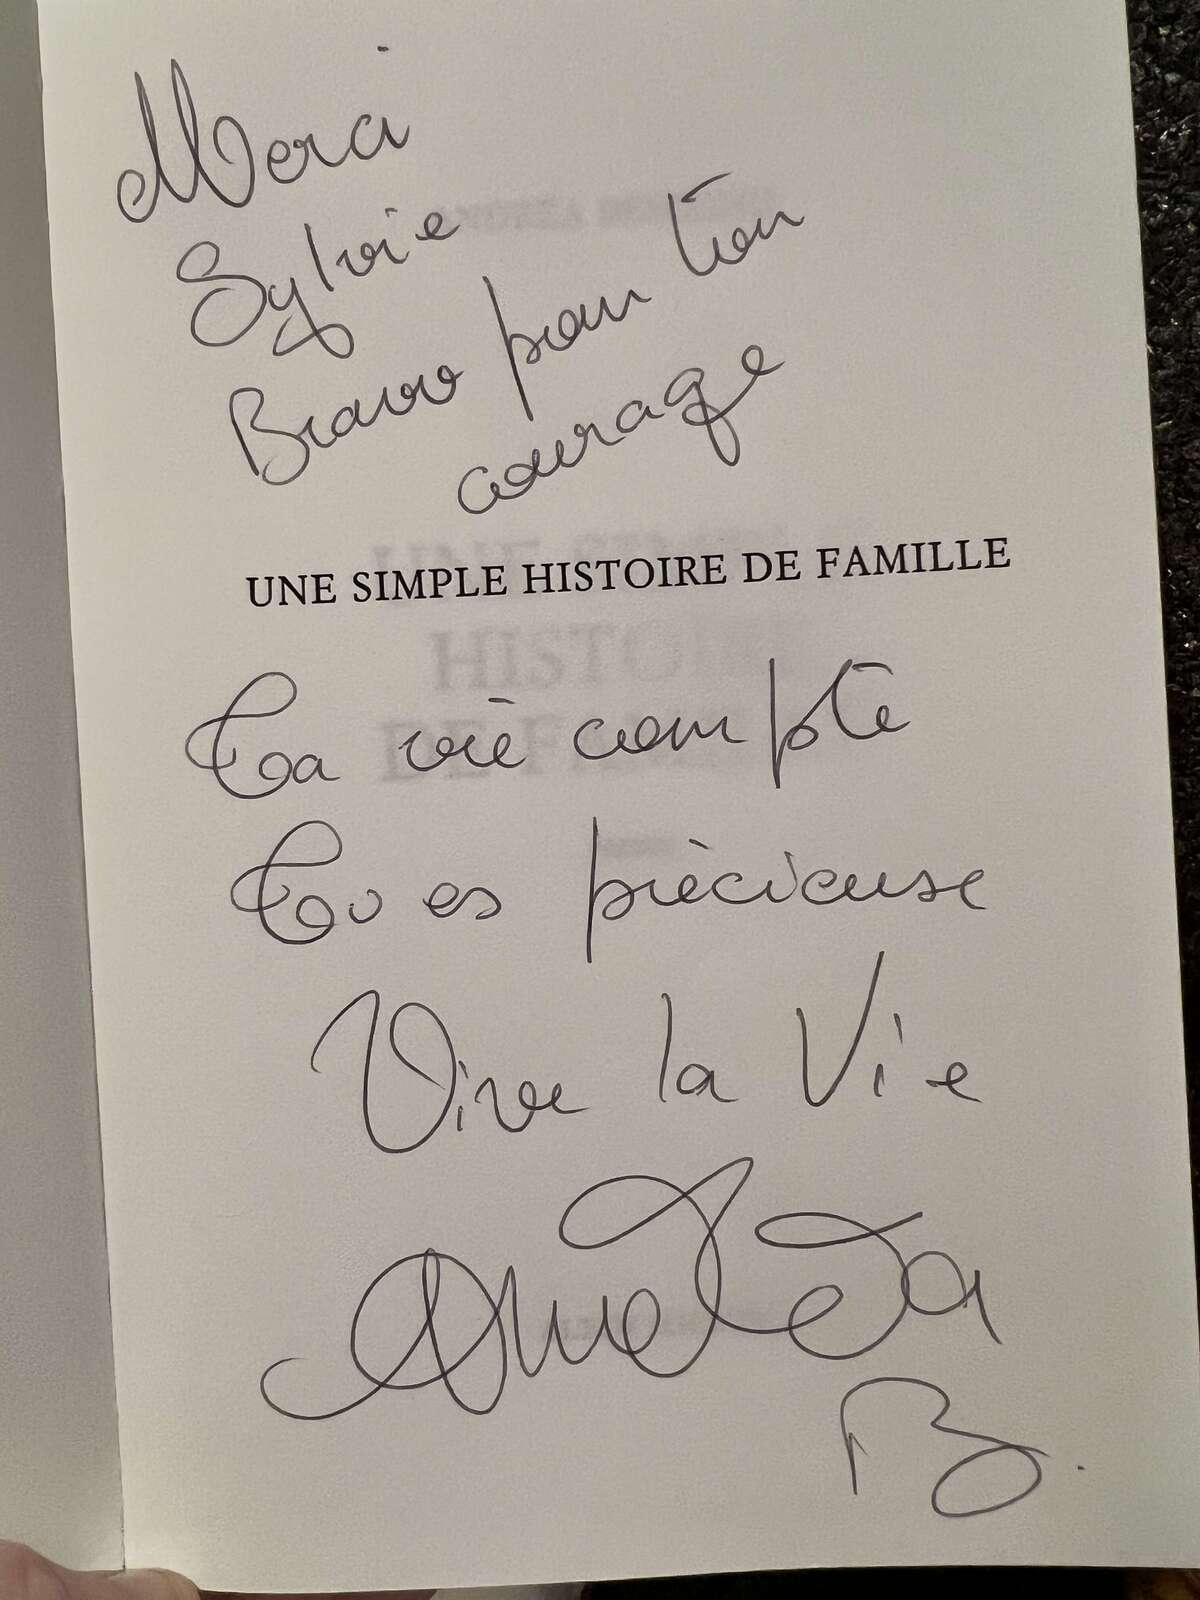 Merci
Sylvie
Bravo pour ton
courage
UNE SIMPLE HISTOIRE DE FAMILLE
Ta vie compte
Tu es précieuse
Vive la Vie
Andréa
B.